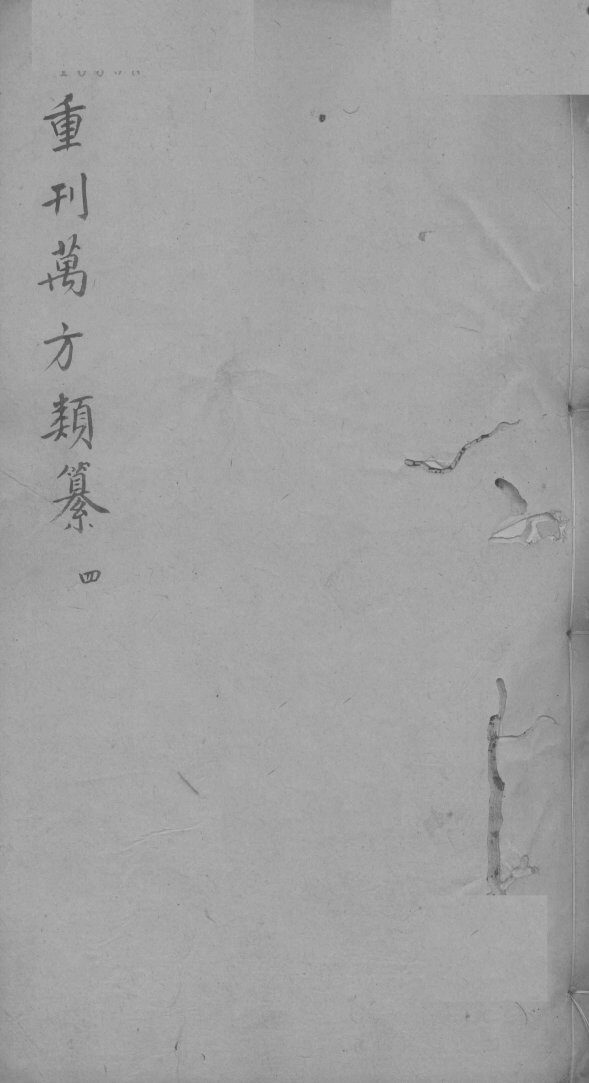 重刊萬方類纂
四